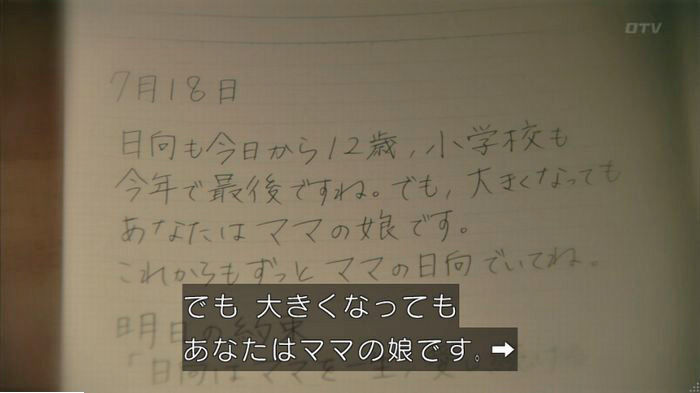 OTV
7月18日
日向も今日から12歳,小学校も
今年で最後ですね。でも,大きくなっても
あなたはママの娘です。
これからもずっとママの日向でいてね。
明日の約束
「日向はママを一生
でも 大きくなっても
あなたはママの娘です。➡